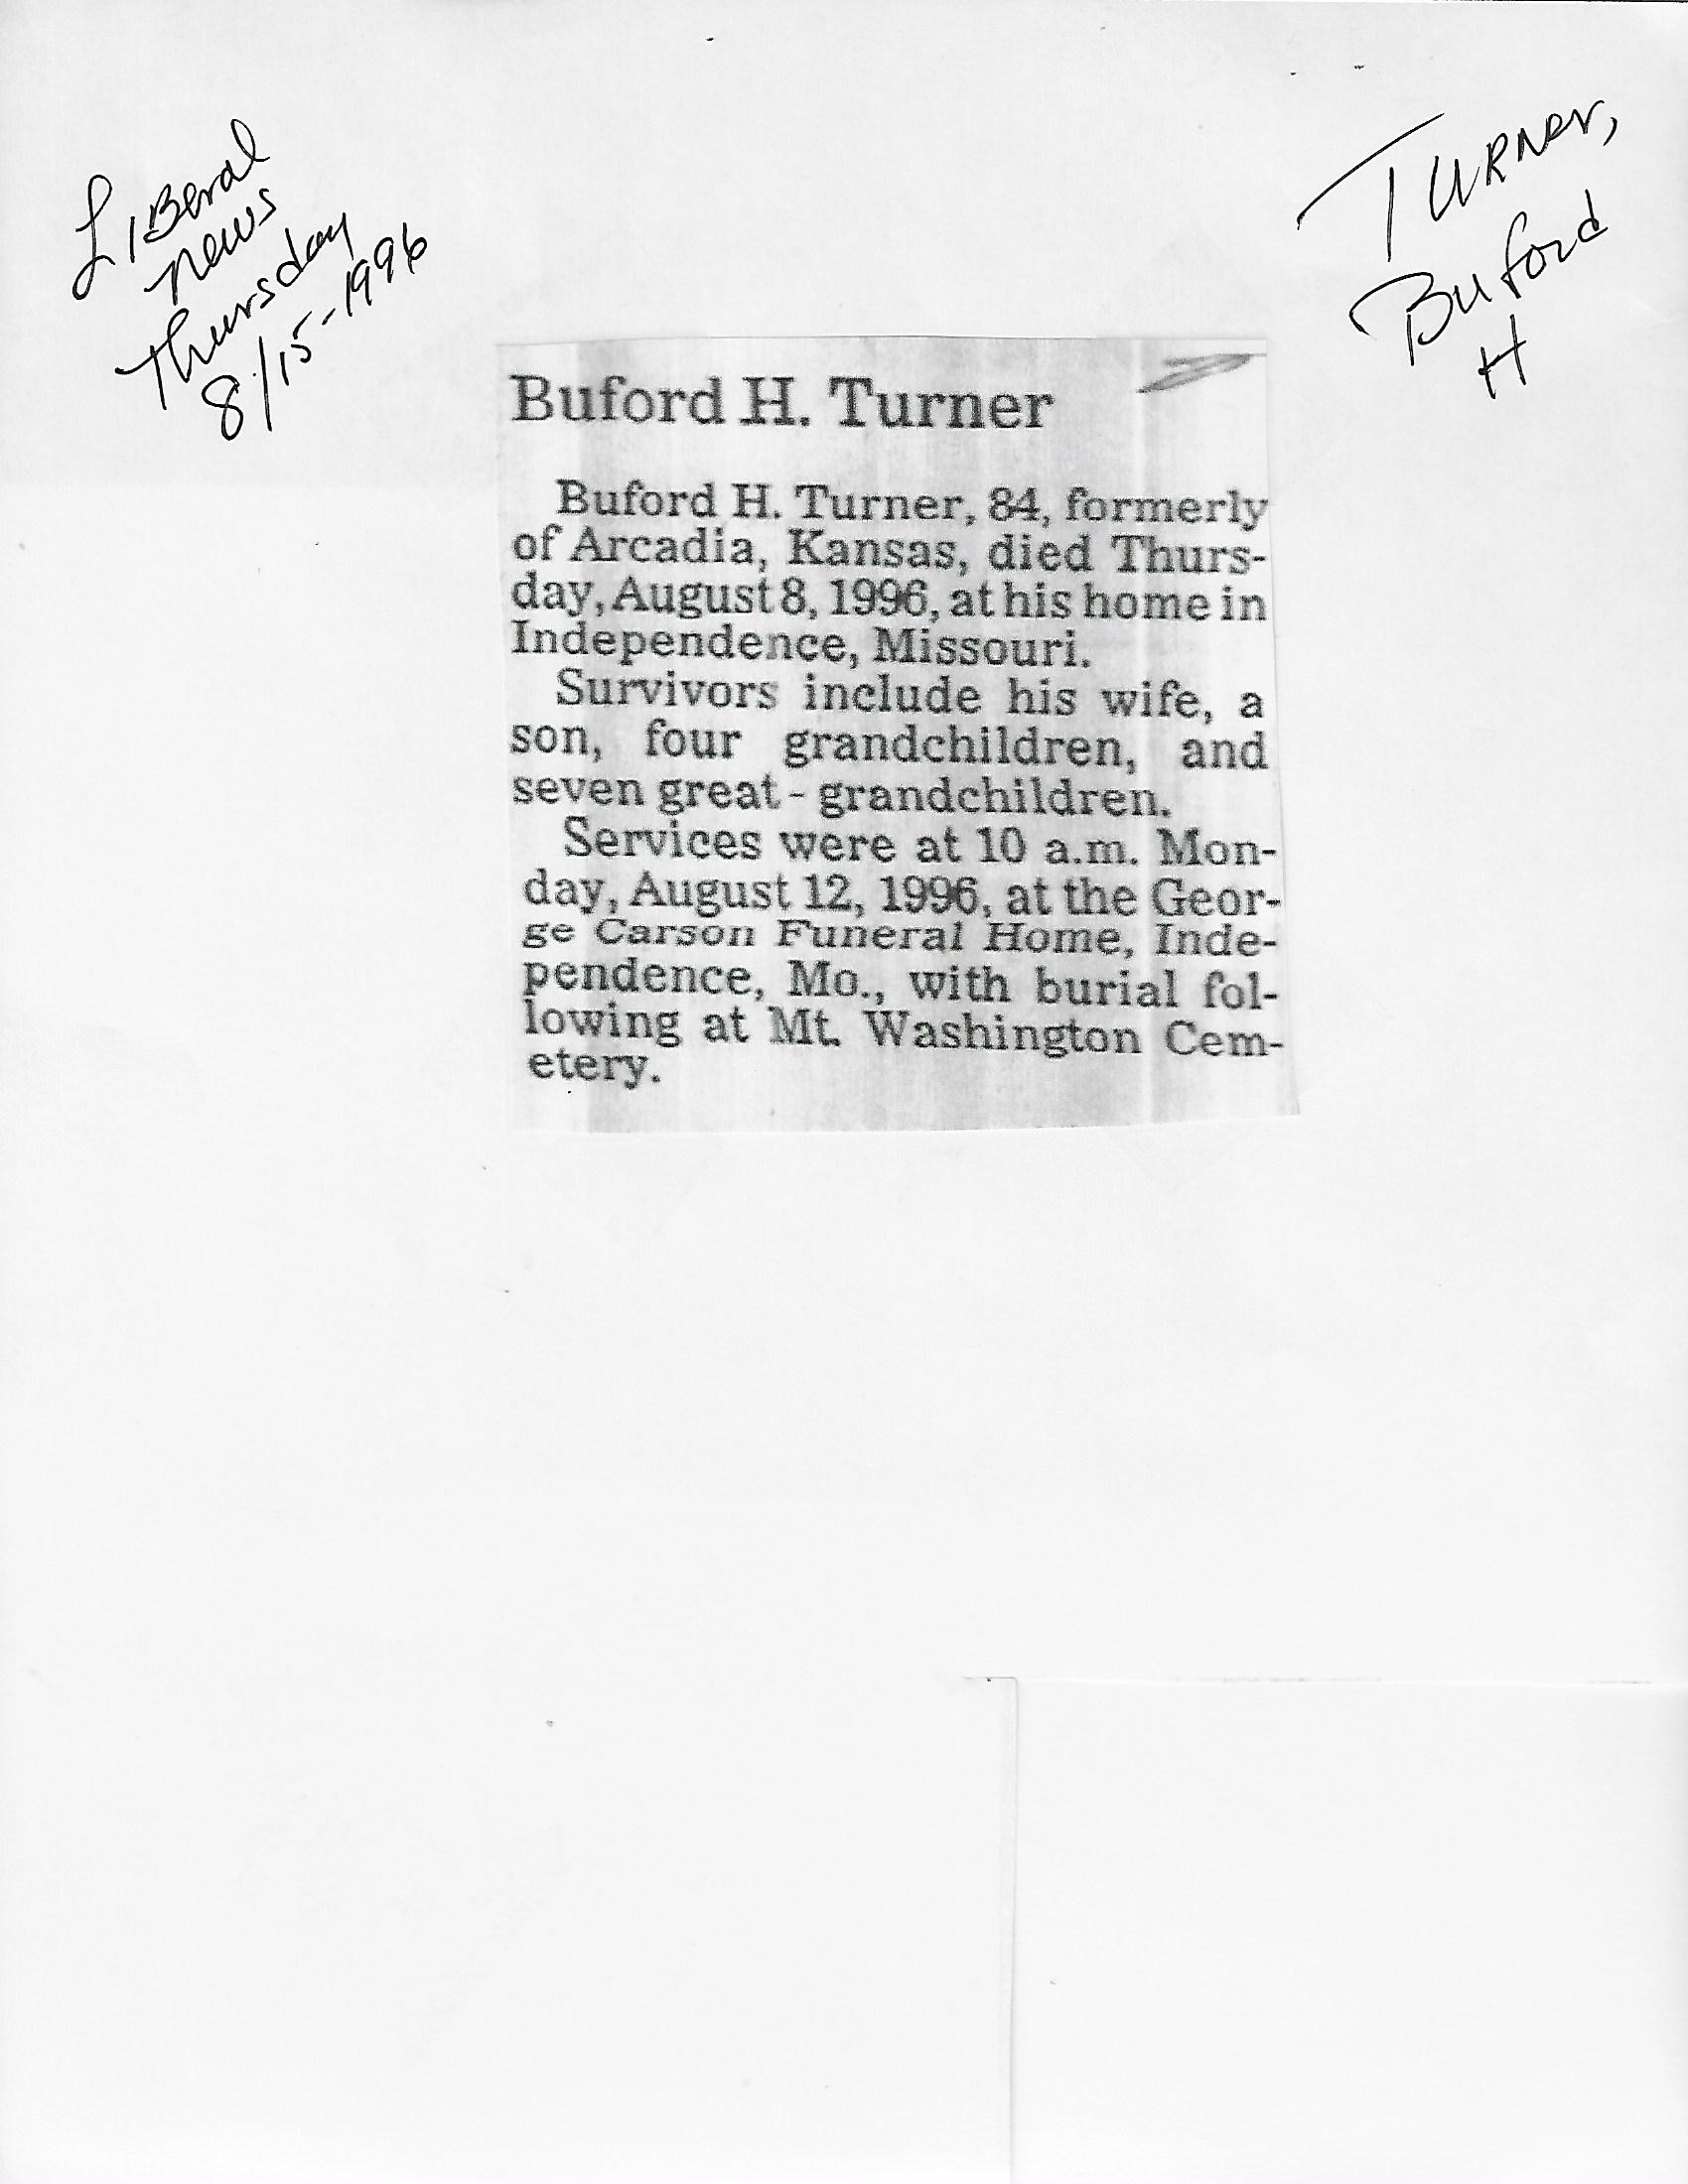 LIBeral
News
Thursday
8/15-1996
TURNer,
Buford
H
Buford H. Turner
Buford H. Turner, 84, formerly
of Arcadia, Kansas, died Thurs-
day, August 8, 1996, at his home in
Independence, Missouri.
Survivors include his wife, a
son, four grandchildren, and
seven great - grandchildren.
Services were at 10 a.m. Mon-
day, August 12, 1996, at the Geor-
ge Carson Funeral Home, Inde-
pendence, Mo., with burial fol-
lowing at Mt. Washington Cem-
etery.